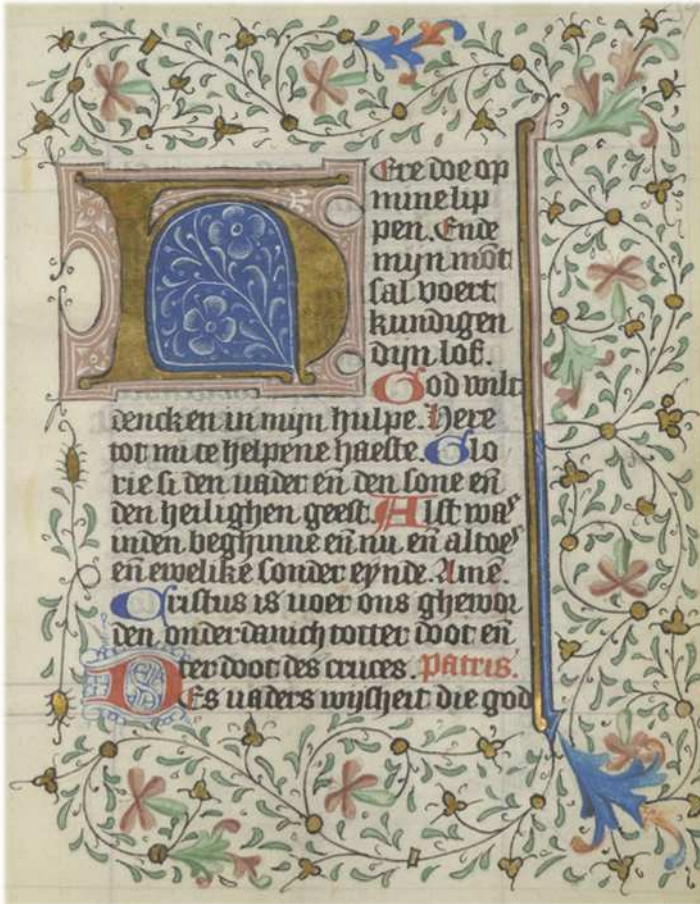 Here doe op
mine lip
pen. Ende
mijn mōt
sal voert
kundigen
dijn lof.
God wilt
dencken in mijn hulpe. Here
tot mi te helpene haeste. Glo
rie si den vader eñ den sone eñ
den heilighen geest. Alst was
inden beghinne eñ nu eñ altoes
eñ ewelike sonder eynde. Amē.
Cristus is voer ons ghewor
den onderdanich totter doot eñ
ter doot des cruces. Patris.
Des vaders wijsheit die god